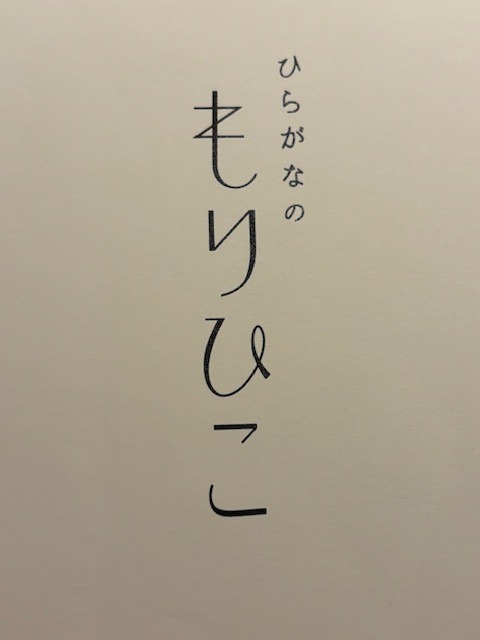 ひらがなの
もりひこ